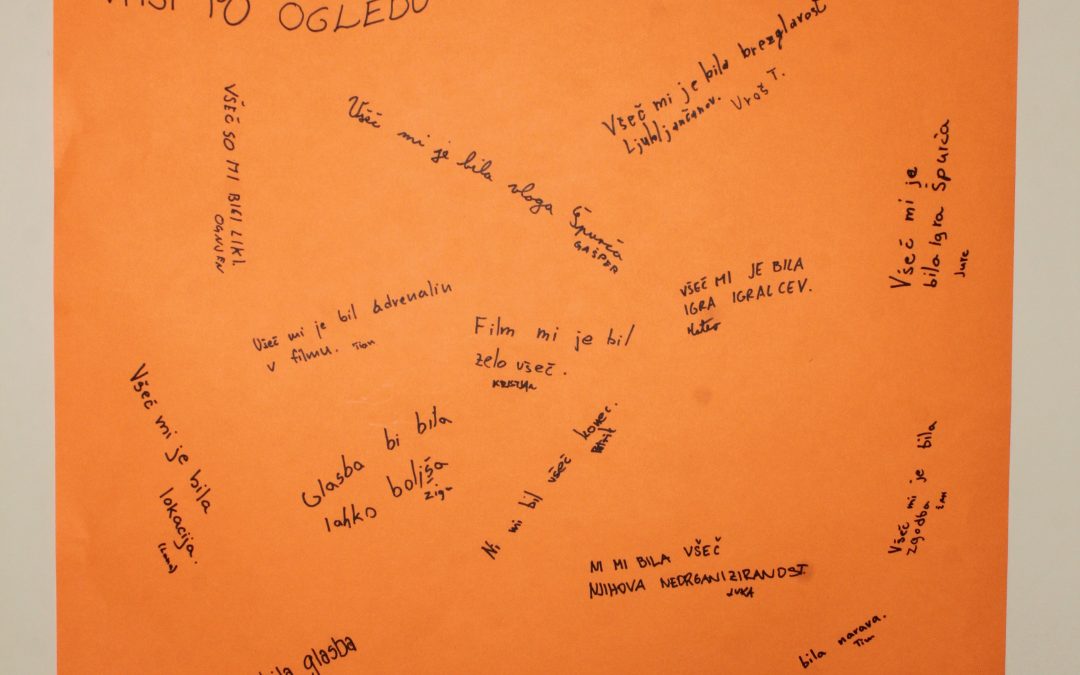 PO OGLEDU
VŠEČ SO MI BILI LIKI.
OGNJEN
Všeč mi je bila vloga Špurča
GAŠPER
Všeč mi je bila brezglavost
Ljubljančanov. Uroš T.
Všeč mi je
bila Igra Špurča
Jure
Všeč mi je bil adrenalin
v filmu. Tian
Film mi je bil
zelo všeč.
KRISTIJAN
VŠEČ MI JE BILA
IGRA IGRALCEV.
Mateo
Všeč mi je bila
lokacija.
Glasba bi bila
lahko boljša
Žiga
Ni mi bil všeč konec.
Patrik
NI MI BILA VŠEČ
NJIHOVA NEORGANIZIRANOST.
LUKA
Všeč mi je bila
zgodba
bila glasba
bila narava.
Tim